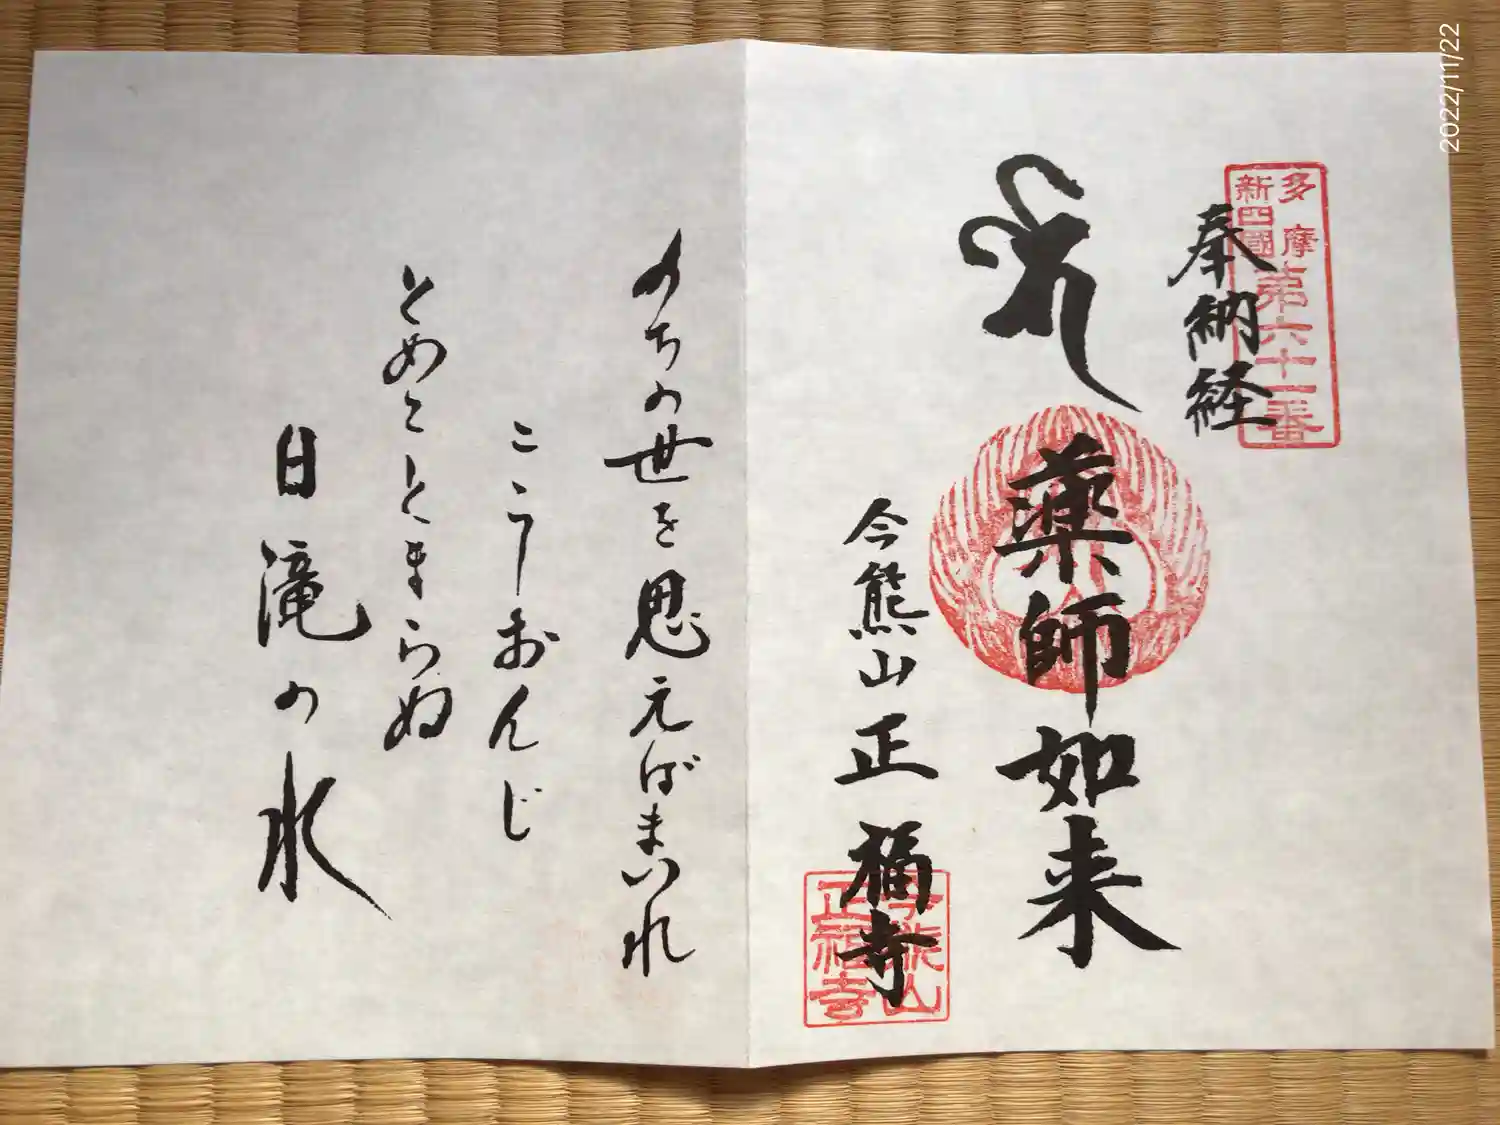 2022/11/22
多摩
新四國
第六十一番
奉納経
薬師如来
今熊山正福寺
正福寺
のちの世を思えばまいれ
こうおんじ
とめてとまらぬ
日滝の水